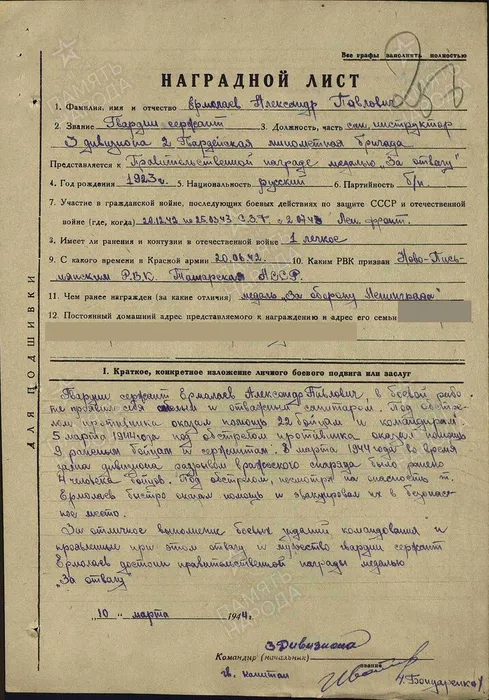 Все графы заполнить полностью
НАГРАДНОЙ ЛИСТ
1. Фамилия, имя и отчество Ермолаев Александр Павлович
2. Звание Гвардии сержант 3. Должность, часть сан. инструктор
3 дивизиона 2 Гвардейская минометная бригада
Представляется к Правительственной награде медалью "За отвагу"
4. Год рождения 1923г. 5. Национальность русский 6. Партийность б/п
7. Участие в гражданской войне, последующих боевых действиях по защите СССР и отечественной
войне (где, когда) 20.12.42 по 25.03.43 С.З.Ф. с 2.07.43 Лен. фронт.
8. Имеет ли ранения и контузии в отечественной войне 1 легкое
9. С какого времени в Красной армии 20.06.42. 10. Каким РВК призван Ново-Пись-
мянским Р.В.К. Татарская АССР.
11. Чем ранее награжден (за какие отличия) медаль "За оборону Ленинграда"
12. Постоянный домашний адрес представляемого к награждению и адрес его семьи
ДЛЯ ПОДШИВКИ
I. Краткое, конкретное изложение личного боевого подвига или заслуг
Гвардии сержант Ермолаев Александр Павлович, в боевой рабо-
те проявил себя смелым и отважным санитаром. Под обстре-
лом противника оказал помощь 22 бойцам и командирам
5 марта 1944 года под обстрелом противника оказал помощь
9 раненым бойцам и сержантам. 8 марта 1944 года во время
залпа дивизиона разрывом вражеского снаряда было ранено
4 человека бойцов. Под обстрелом, несмотря на опасность т.
Ермолаев быстро оказал помощь и эвакуировал их в безопас-
ное место.
За отличное выполнение боевых заданий командования и
проявленные при этом отвагу и мужество гвардии сержант
Ермолаев достоин правительственной награды медалью
"За отвагу"
"10" марта 1944.
3 Дивизиона
Командир (начальник)
звание
гв. капитан
/Бондаренко/
ПАМЯТЬ НАРОДА
ПАМЯТЬ НАРОДА